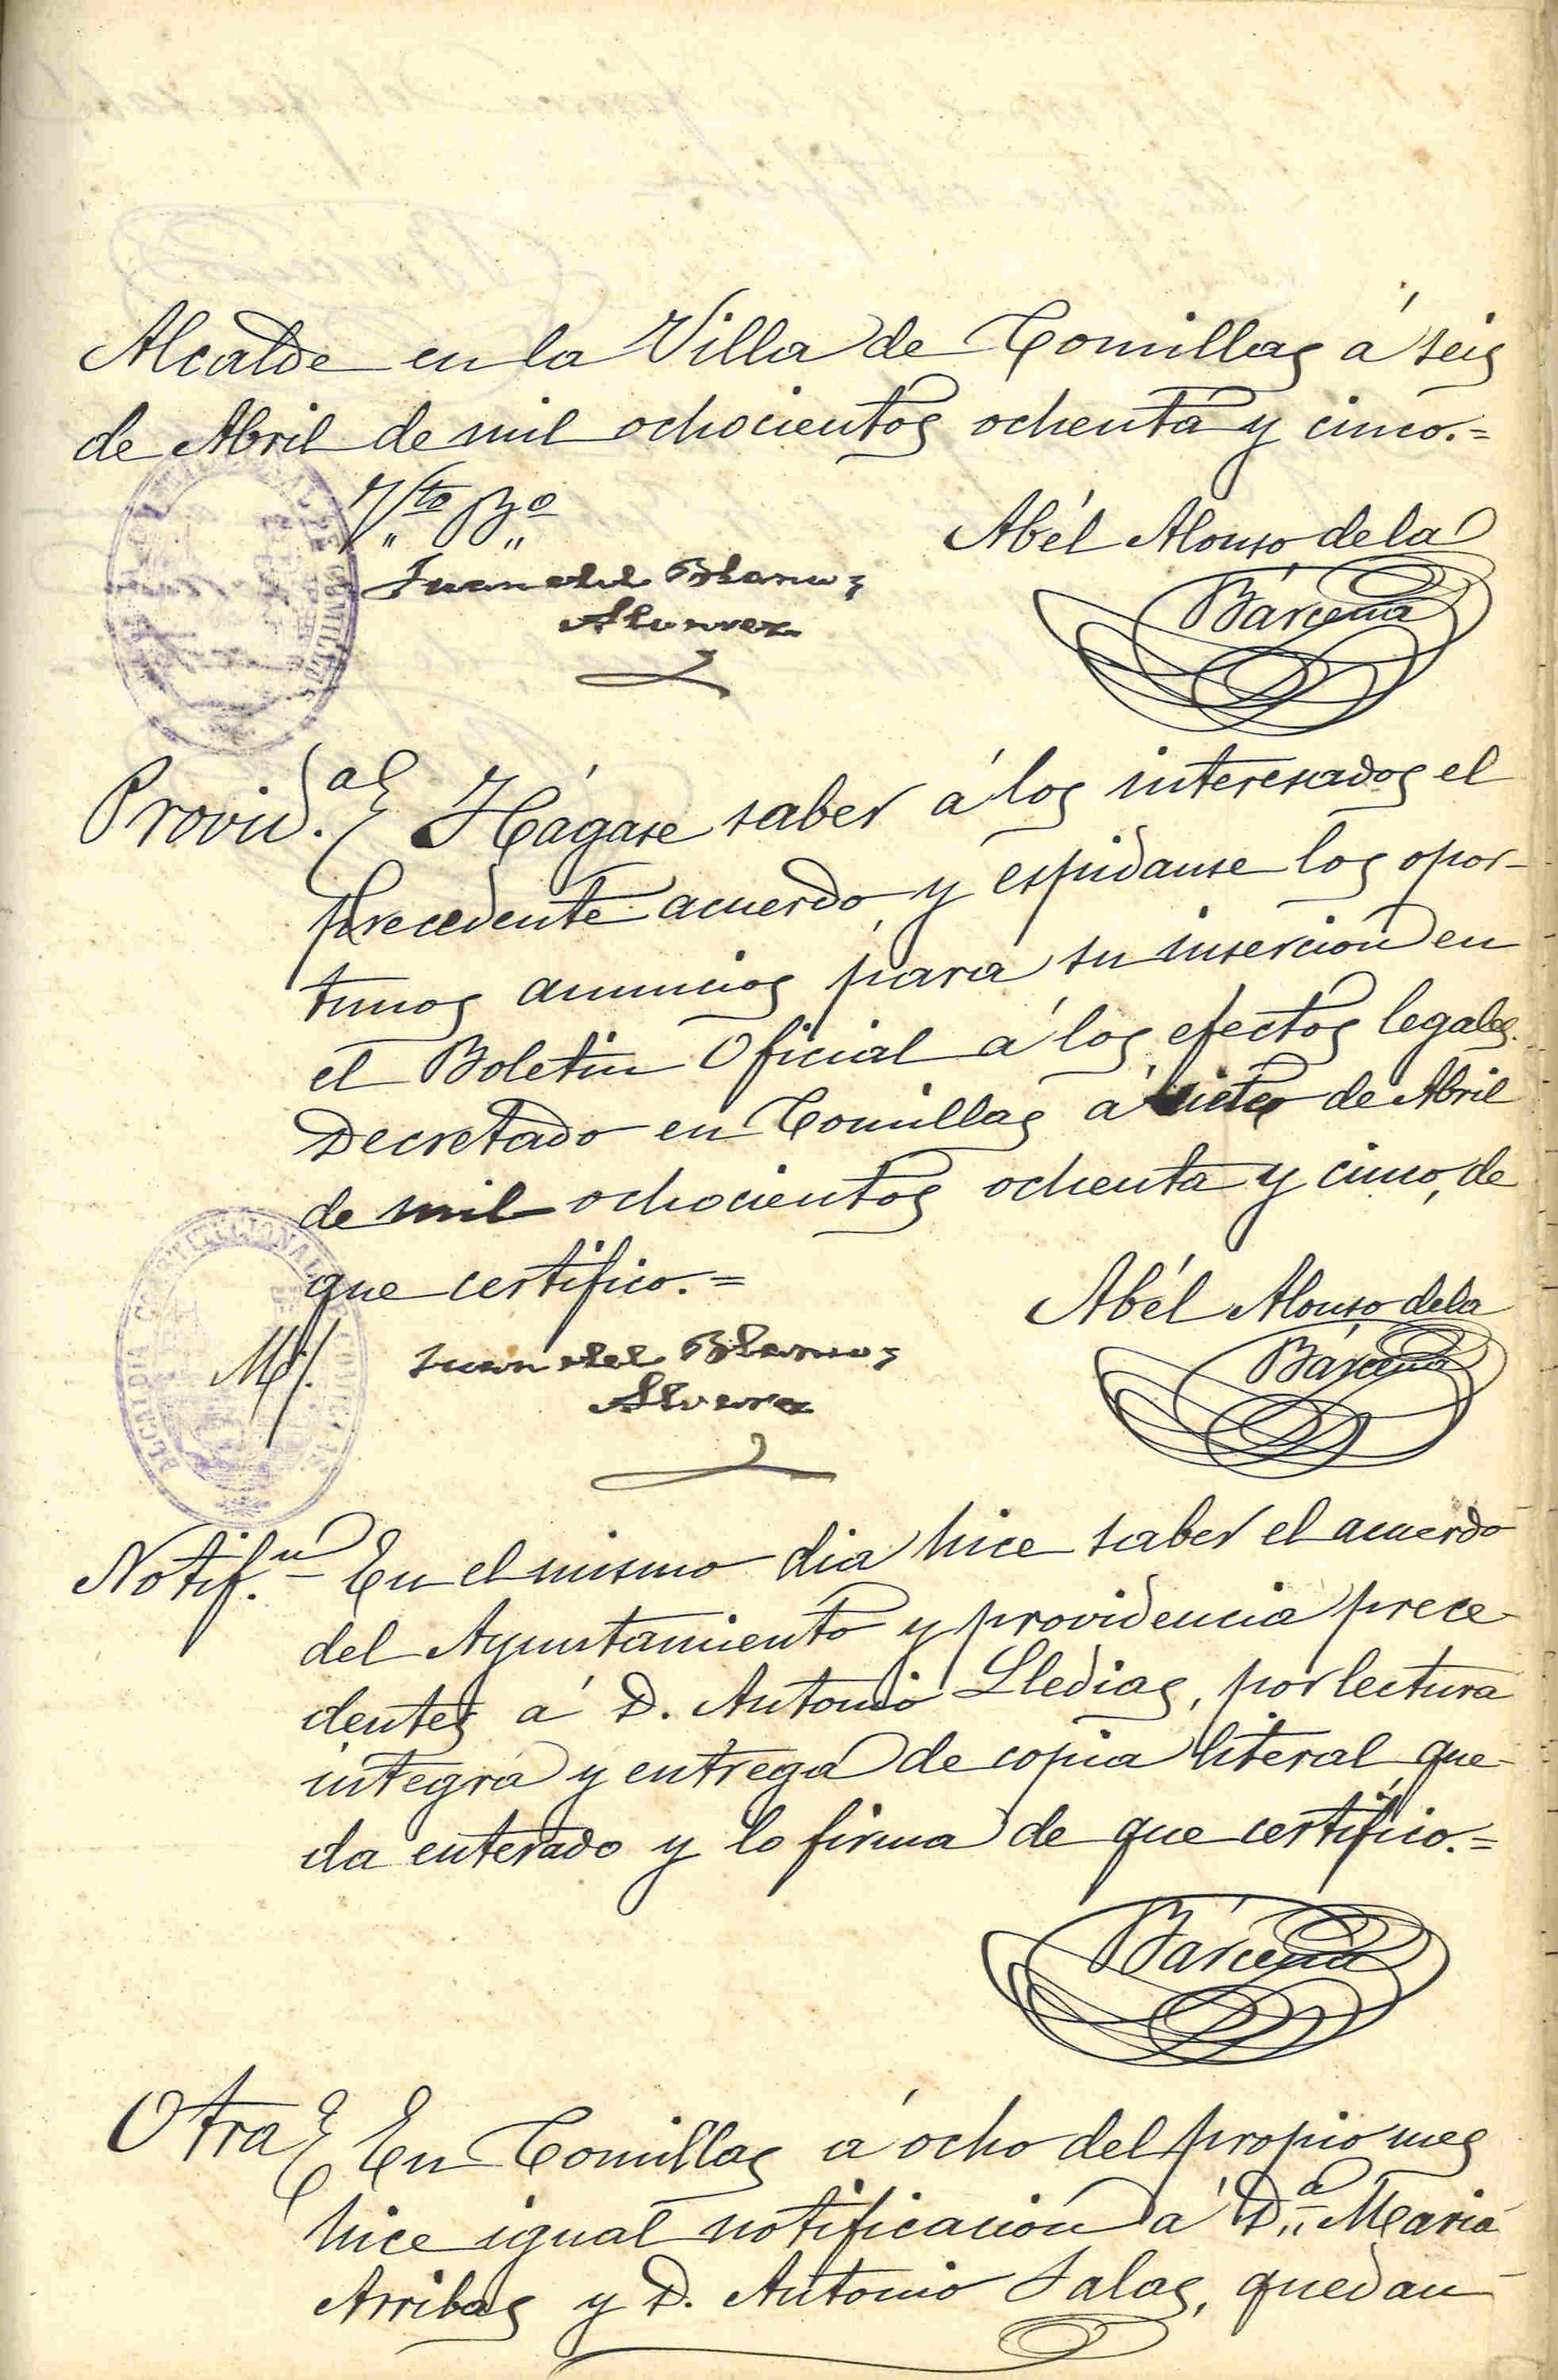 Alcalde en la Villa de Comillas á seis
de Abril de mil ochocientos ochenta y cinco.=
Vto Bo
Juan del Blanco y
Alvarez
Abél Alonso de la
Bárcena
Provid.a Hágase saber á los interesados el
precedente acuerdo y espidanse los opor-
tunos anuncios para su insercion en
el Boletin Oficial á los efectos legales.
Decretado en Comillas á siete de Abril
de mil ochocientos ochenta y cinco, de
que certifico.=
ALCALDIA CONSTITUCIONAL DE COMILLAS
Juan del Blanco y
Alvarez
Abél Alonso de la
Bárcena
Notif.n En el mismo dia hice saber el acuerdo
del Ayuntamiento y providencia prece-
dentes á D. Antonio Lledias, por lectura
integra y entrega de copia literal que-
da enterado y lo firma de que certifico.=
Bárcena
Otra En Comillas á ocho del propio mes
hice igual notificacion á D.a Maria
Arribas y D. Antonio Salas, quedan-